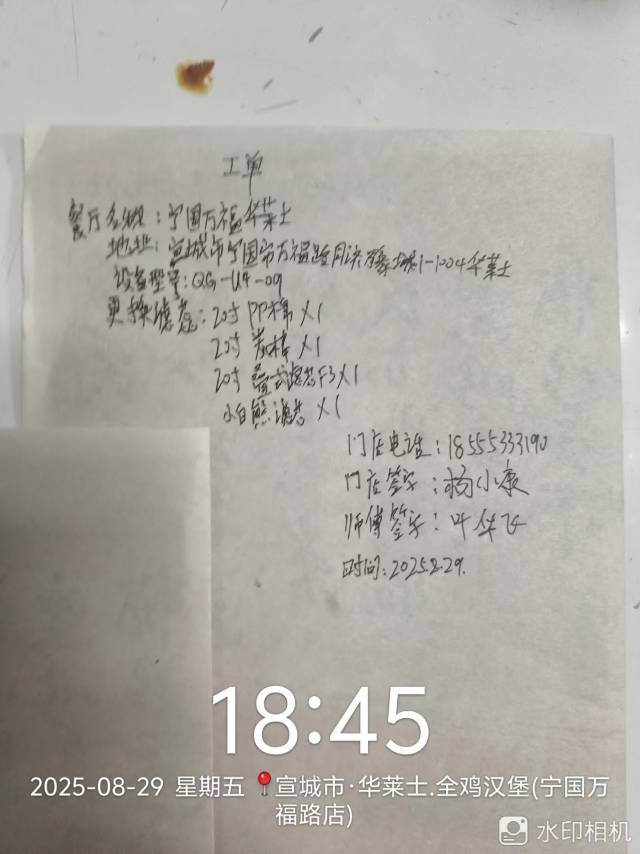 工单
餐厅名称：宁国万福华莱士
地址：宣城市宁国市万福路1-1004华莱士
设备型号：QG-U4-09
更换滤芯：20寸PP棉X1
20寸炭棒X1
20寸叠式滤芯F3X1
小白熊滤芯X1
门店电话：18555333190
门店签字：杨小康
师傅签字：叶华飞
时间：2025.8.29.
18:45
2025-08-29 星期五 宣城市·华莱士.全鸡汉堡(宁国万
福路店)
水印相机